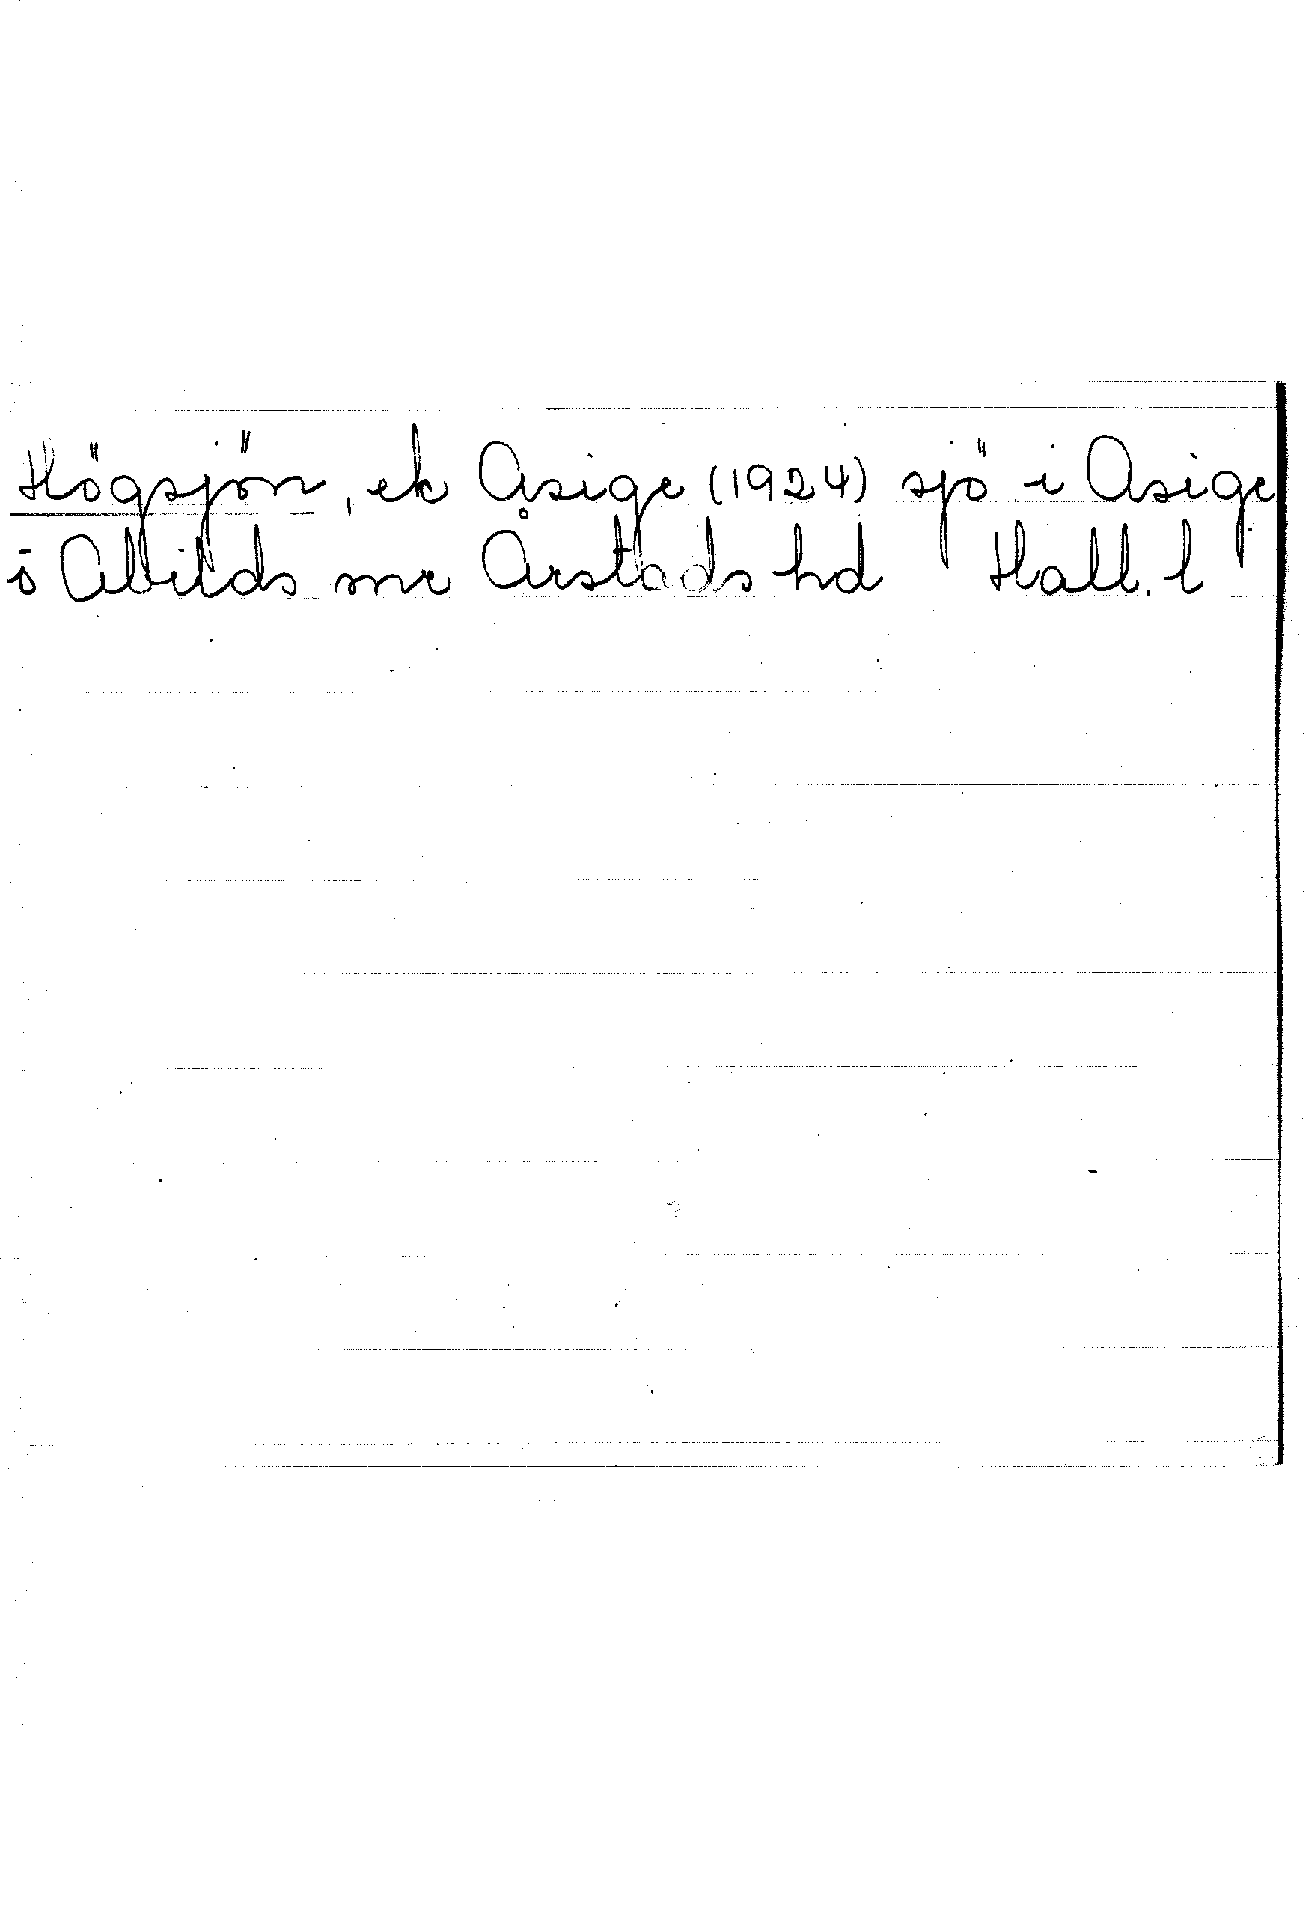 Högsjön, ek Asige (1924) sjö i Asige
o Abilds snr Årstads hd Hall. l